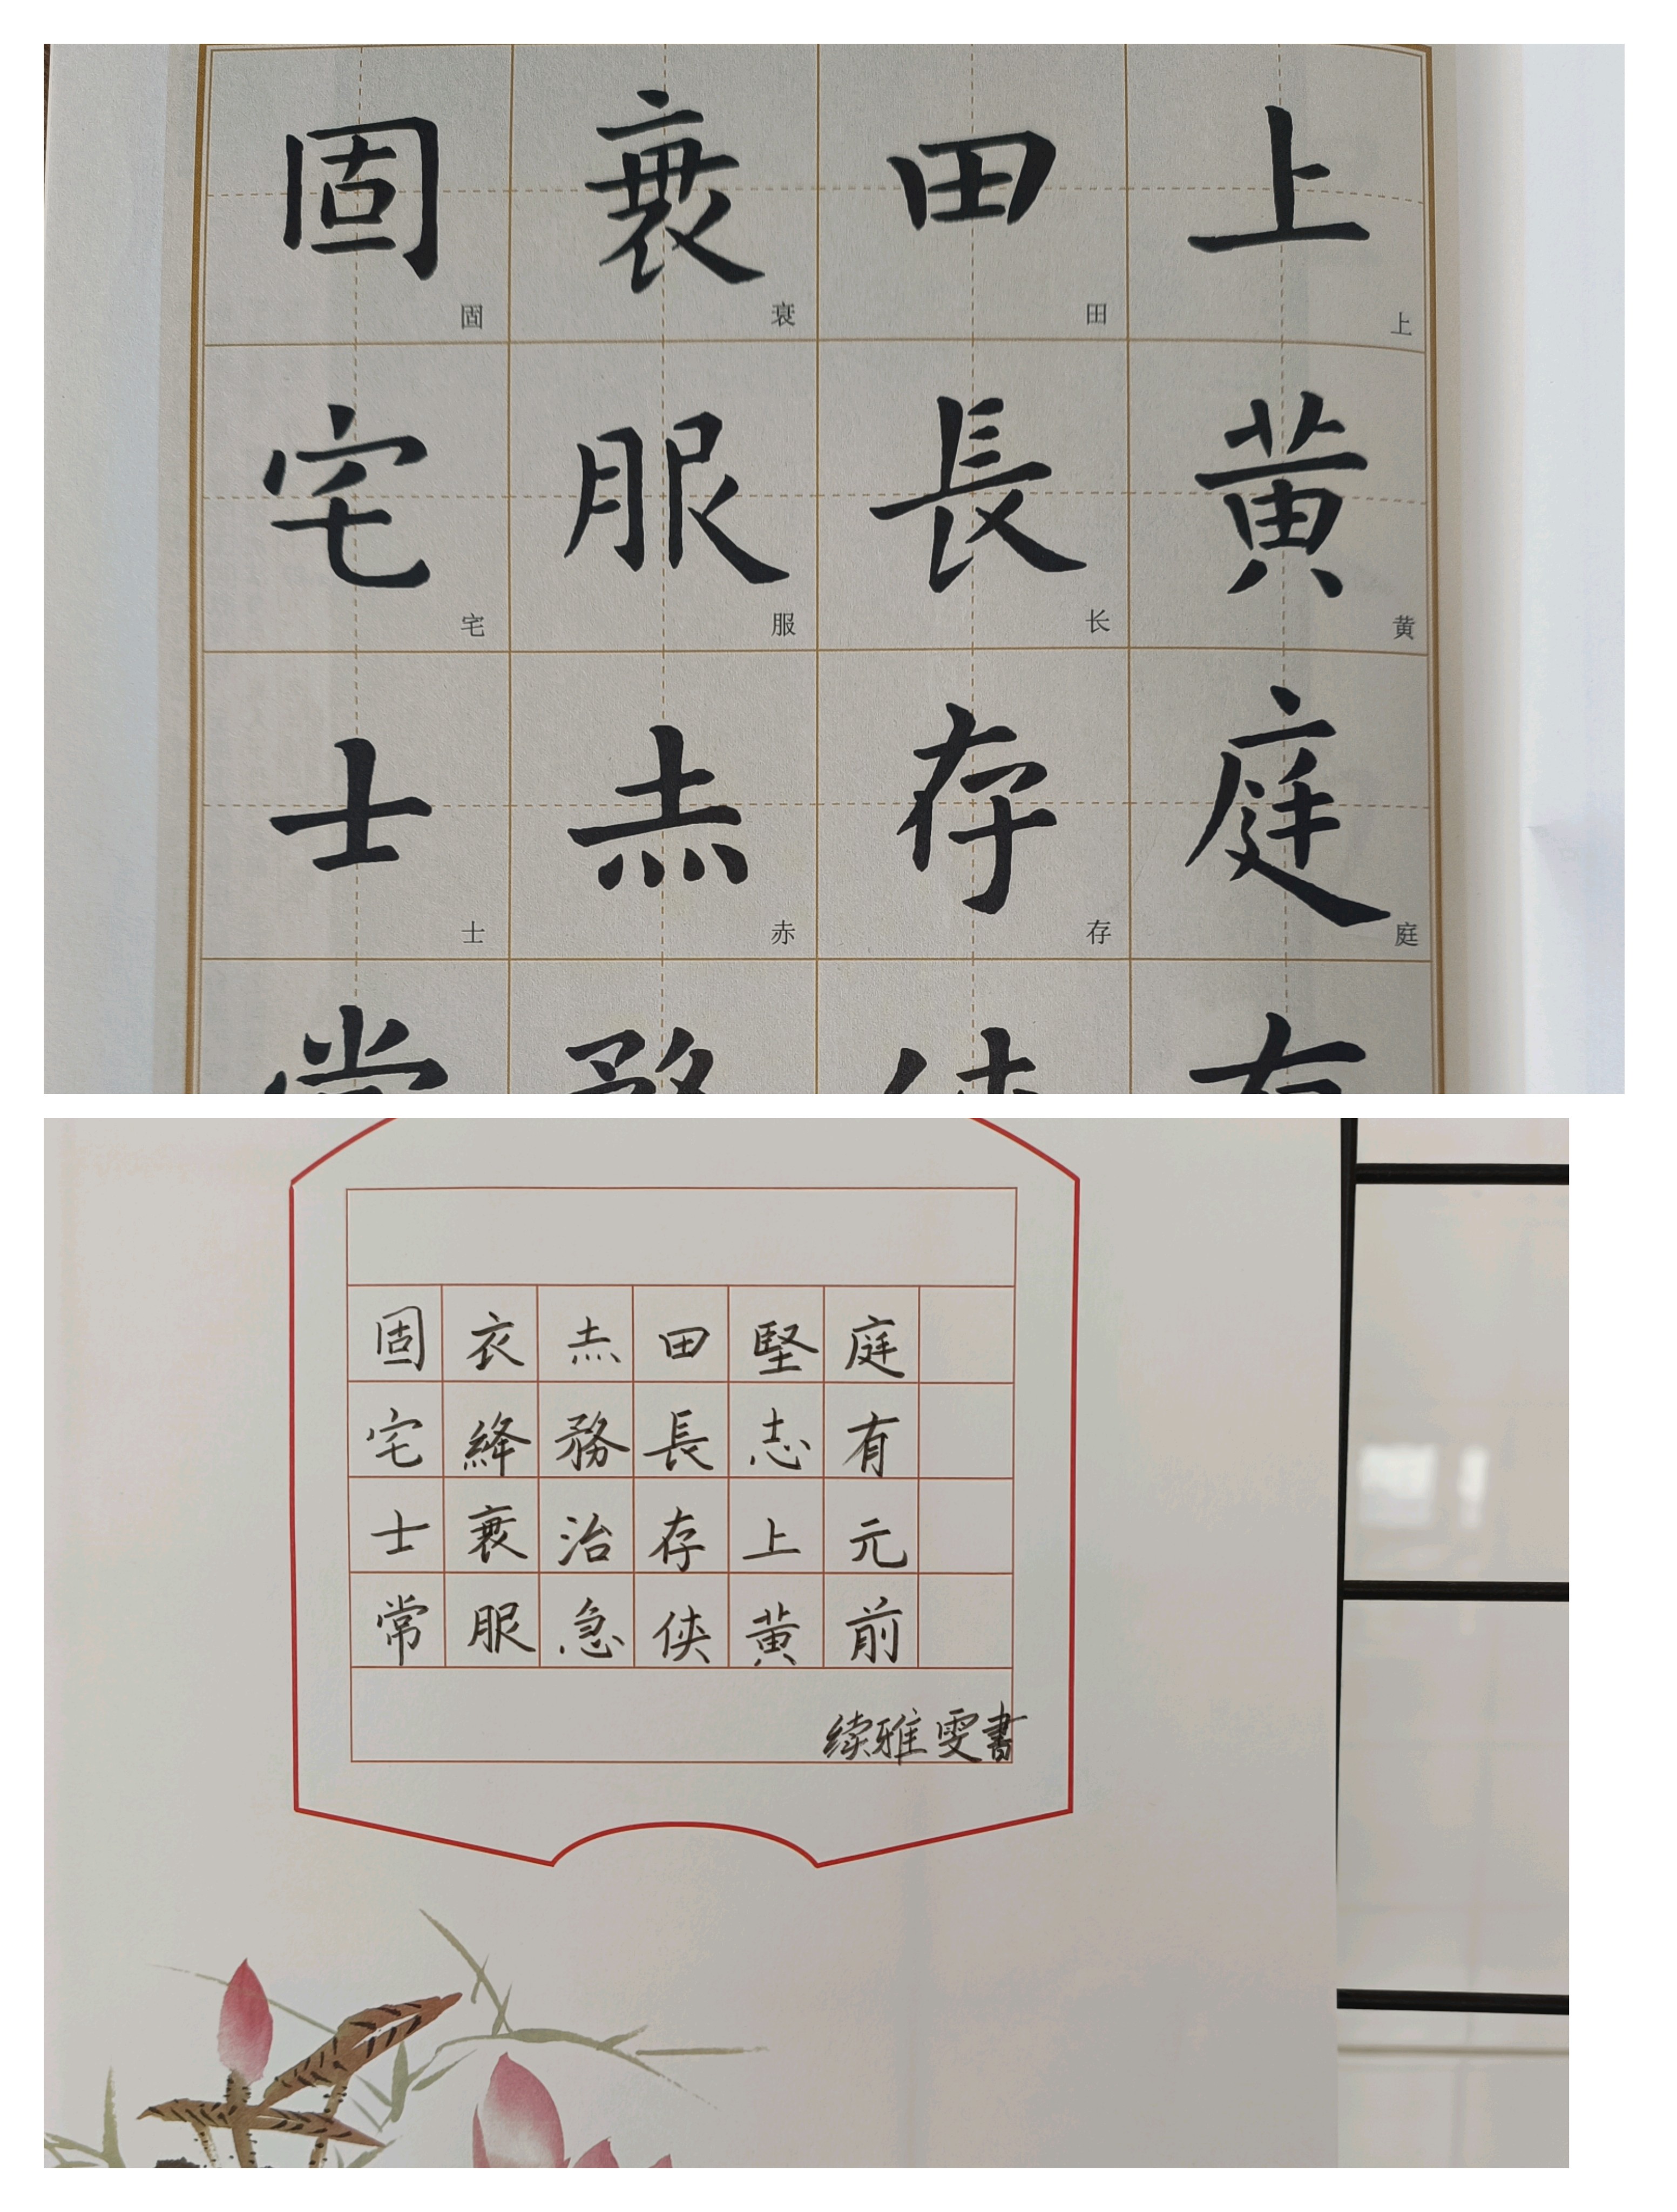 上黃庭
上黄庭
田長存
田长存
衰服赤
衰服赤
固宅士
固宅士
庭有元前
堅志上黃
田長存俠
赤務治急
衣絳衰服
固宅士常
续雅雯書